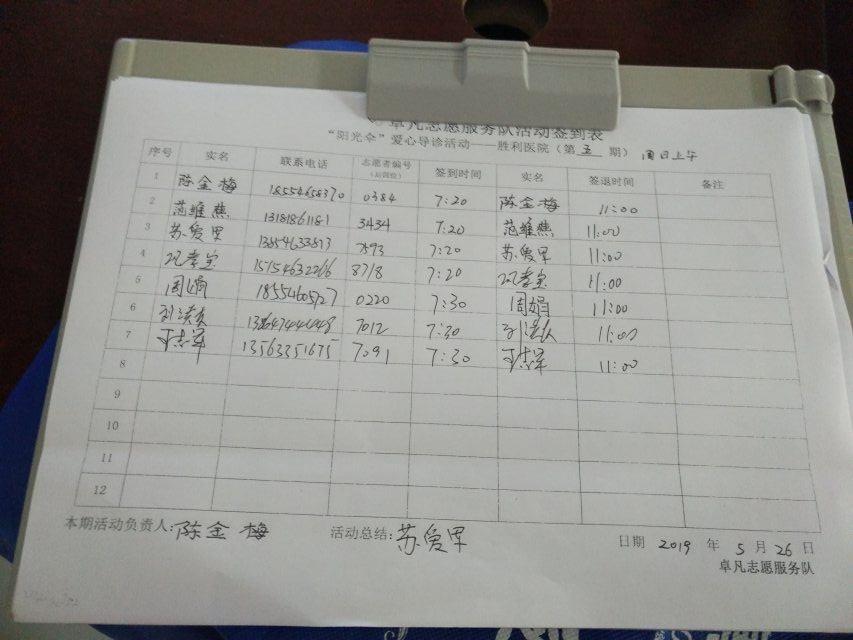 卓凡志愿服务队活动签到表
“阳光伞”爱心导诊活动——胜利医院（第五期）周日上午
序号 实名 联系电话 志愿者编号（后四位） 签到时间 实名 签退时间 备注
1 陈金梅 18554658370 0384 7:20 陈金梅 11:00
2 范维燕 13181861181 3434 7:20 范维燕 11:00
3 苏爱军 13854633813 7593 7:20 苏爱军 11:00
4 巩孝宝 15154632266 8718 7:20 巩孝宝 11:00
5 周娟 18554605727 0220 7:30 周娟 11:00
6 7012 7:30 11:00
7 王志军 13563351675 7091 7:30 王志军 11:00
8
9
10
11
12
本期活动负责人:陈金梅 活动总结:苏爱军 日期 2019 年 5 月 26 日
卓凡志愿服务队